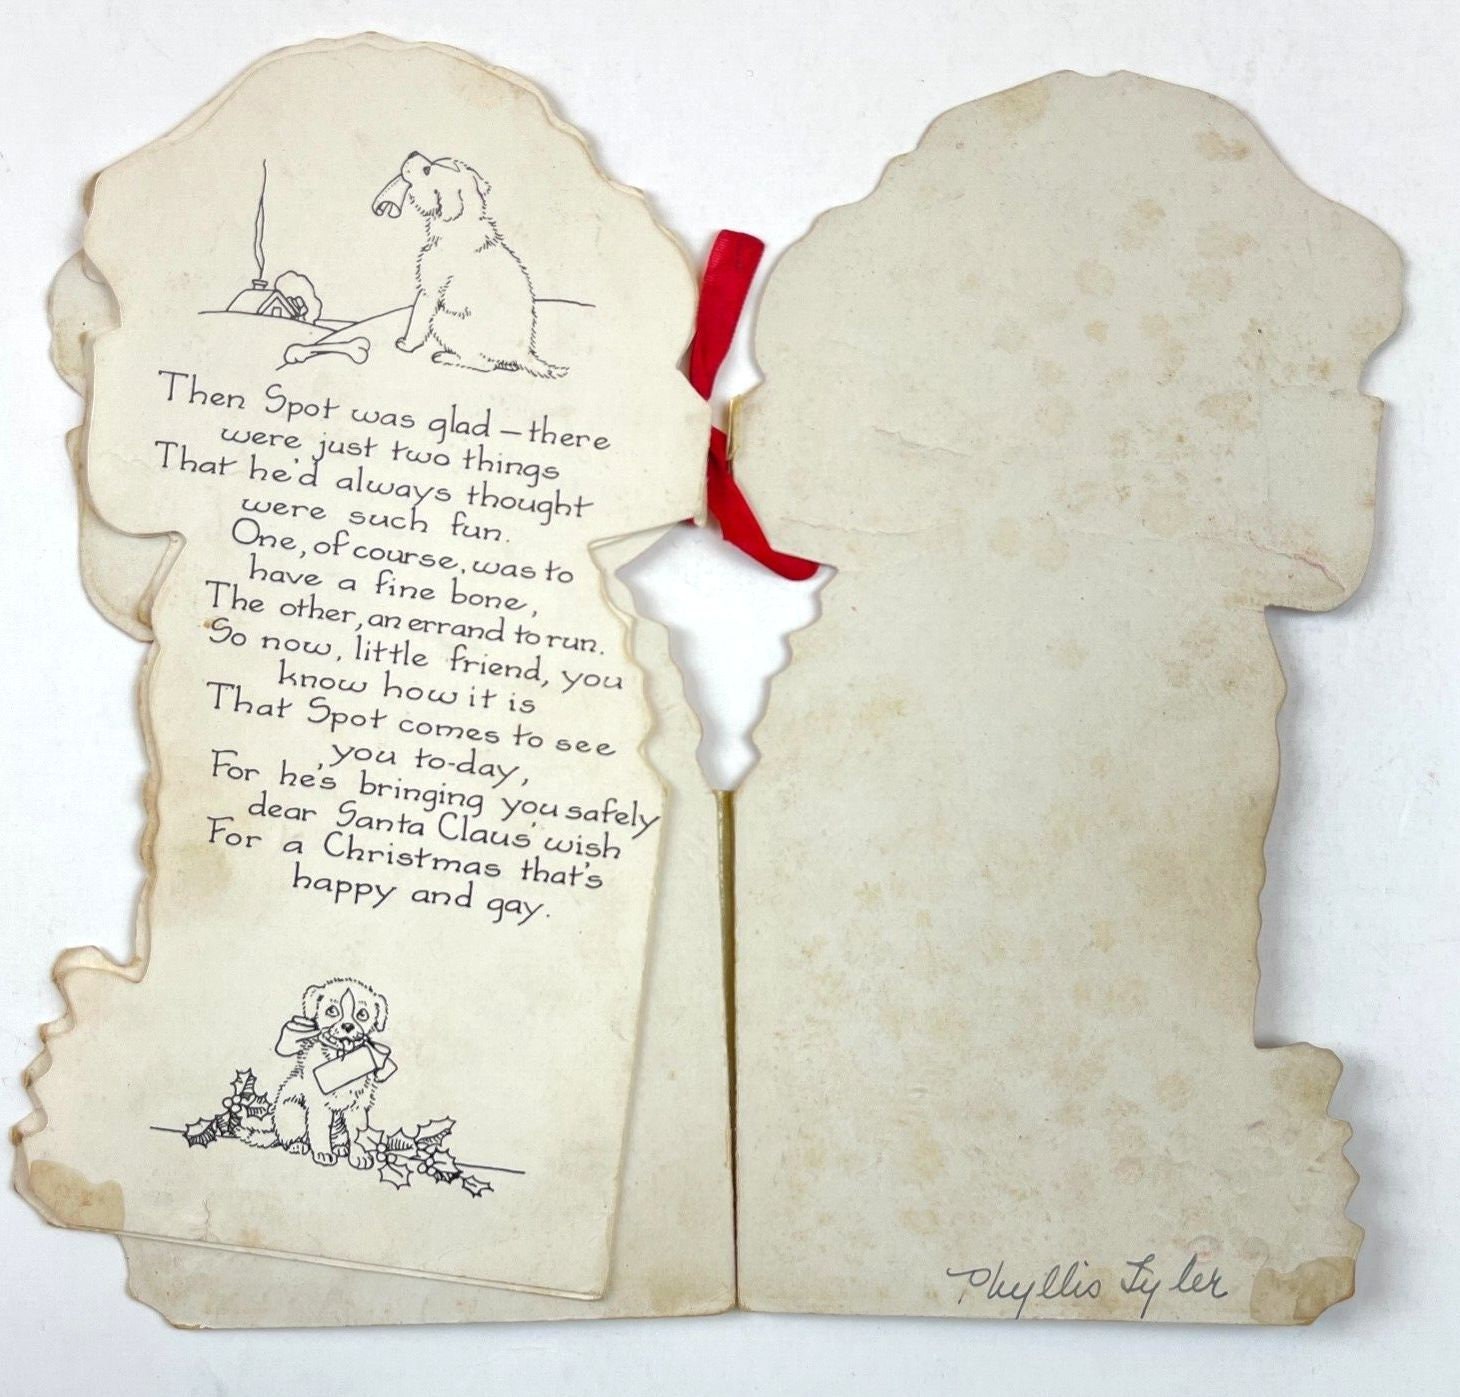 Then Spot was glad — there
were just two things
That he'd always thought
were such fun.
One, of course, was to
have a fine bone,
The other, an errand to run.
So now, little friend, you
know how it is
That Spot comes to see
you to-day,
For he's bringing you safely
dear Santa Claus' wish
For a Christmas that's
happy and gay.
Phyllis Tyler